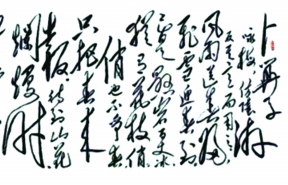 卜算子
咏梅
反其意而用之
风雨送春归
飞雪迎春到
已是悬崖百丈冰
犹有花枝俏
俏也不争春
只把春来
报待到山花
烂漫时